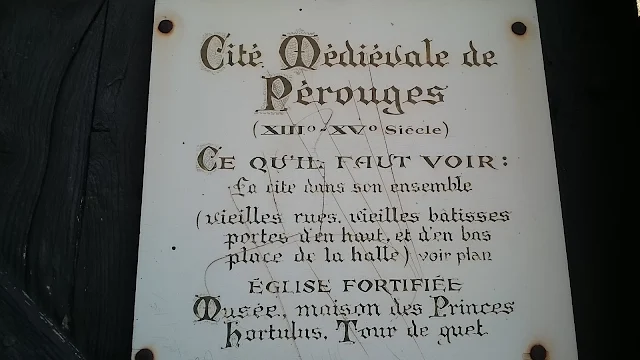 Cité Médiévale de
Pérouges
(XIIIº-XVº Siècle)
CE QU'IL FAUT VOIR:
La cité dans son ensemble
(vieilles rues, vieilles bâtisses
portes d'en haut, et d'en bas
place de la halle) voir plan
ÉGLISE FORTIFIÉE
Musée, maison des Princes
Hortulus, Tour de guet